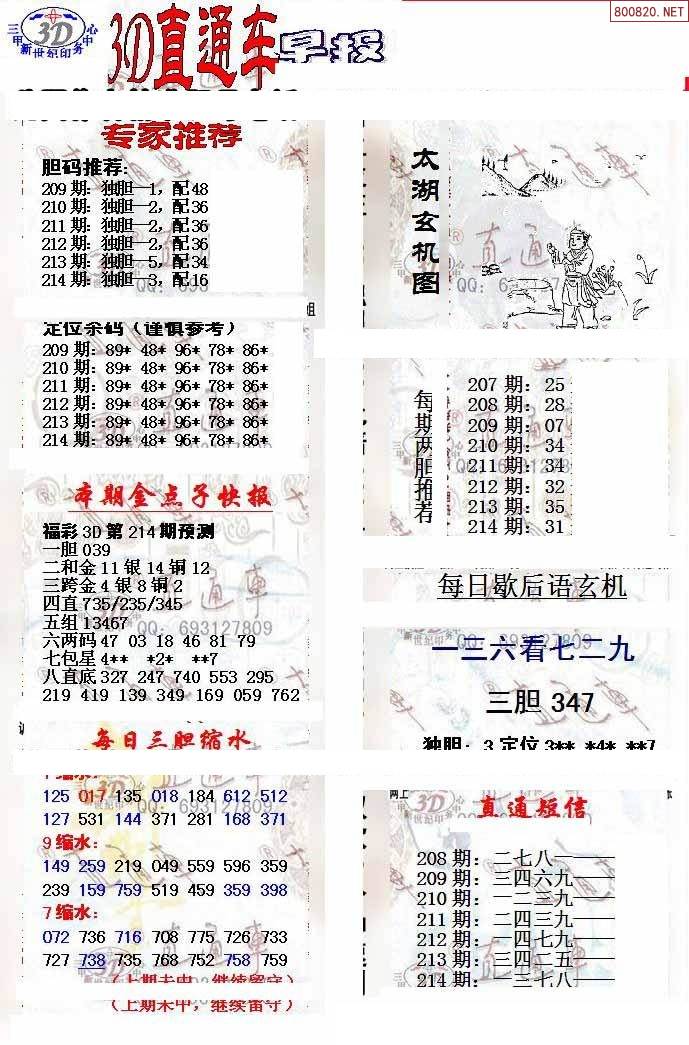 800820.NET
三甲 3D 中心
新世纪印务
3D直通车早报
专家推荐
胆码推荐:
209期: 独胆—1, 配48
210期: 独胆—2, 配36
211期: 独胆—2, 配36
212期: 独胆—2, 配36
213期: 独胆—5, 配34
214期: 独胆—3, 配16
定位杀码(谨慎参考)
209期: 89* 48* 96* 78* 86*
210期: 89* 48* 96* 78* 86*
211期: 89* 48* 96* 78* 86*
212期: 89* 48* 96* 78* 86*
213期: 89* 48* 96* 78* 86*
214期: 89* 48* 96* 78* 86*
本期金点子快报
福彩3D第214期预测
一胆039
二和金11银14铜12
三跨金4银8铜2
四直735/235/345
五组13467
六两码47 03 18 46 81 79
七包星4** *2* **7
八直底327 247 740 553 295
219 419 139 349 169 059 762
每日三胆缩水
125 017 135 018 184 612 512
127 531 144 371 281 168 371
9缩水:
149 259 219 049 559 596 359
239 159 759 519 459 359 398
7缩水:
072 736 716 708 775 726 733
727 738 735 768 752 758 759
(上期未中, 继续留守)
(上期未中, 继续留守)
太湖玄机图
组
每期两胆推荐
207期: 25
208期: 28
209期: 07
210期: 34
211期: 34
212期: 32
213期: 35
214期: 31
每日歇后语玄机
一三六看七二九
三胆 347
独胆: 3 定位 3** *4* **7
网上
直通短信
208期: 二七八——
209期: 三四六九——
210期: 一二三九——
211期: 二四三九——
212期: 一四七九——
213期: 三四二五——
214期: 一三七八——
QQ: 693127809
直通車